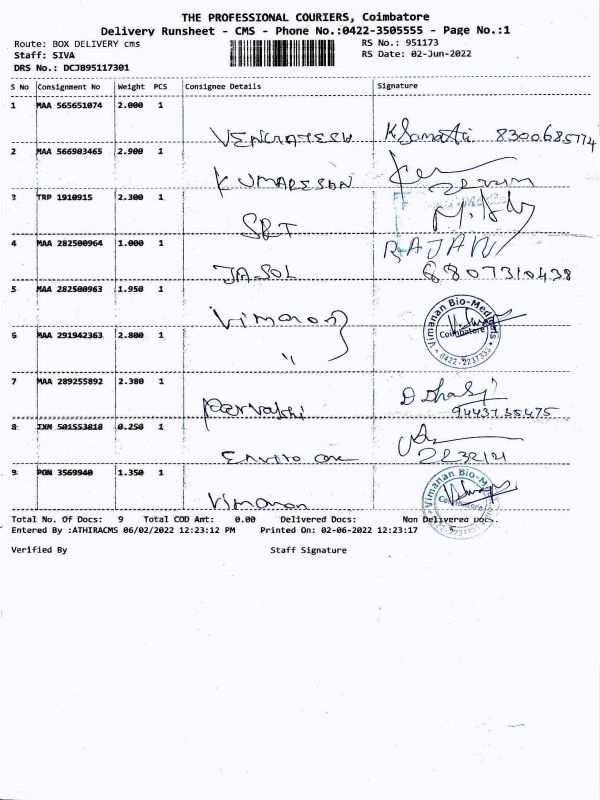 THE PROFESSIONAL COURIERS, Coimbatore
Delivery Runsheet - CMS - Phone No.:0422-3505555 - Page No.:1
Route: BOX DELIVERY cms RS No.: 951173
Staff: SIVA RS Date: 02-Jun-2022
DRS No.: DCJB95117301
S No Consignment No Weight PCS Consignee Details Signature
1 MAA 565651074 2.000 1
VENCATESH 8300685774
2 MAA 566903465 2.900 1
KUMARESAN
3 TRP 1910915 2.300 1
SRT
4 MAA 282500964 1.000 1 RAJAN
JASOL 6807310438
5 MAA 282500963 1.950 1
Vimanan Vimanan Bio-Medicals
Coimbatore
0422-2237333
6 MAA 291942363 2.800 1
"
7 MAA 289255892 2.380 1
8 IXM 501553818 0.250 1
Enviro care
9 PON 3569940 1.350 1 Vimanan Bio-M
Coimbatore
Vimanan
Total No. Of Docs: 9 Total COD Amt: 0.00 Delivered Docs: Non Delivered Docs.
Entered By :ATHIRACMS 06/02/2022 12:23:12 PM Printed On: 02-06-2022 12:23:17
Verified By Staff Signature